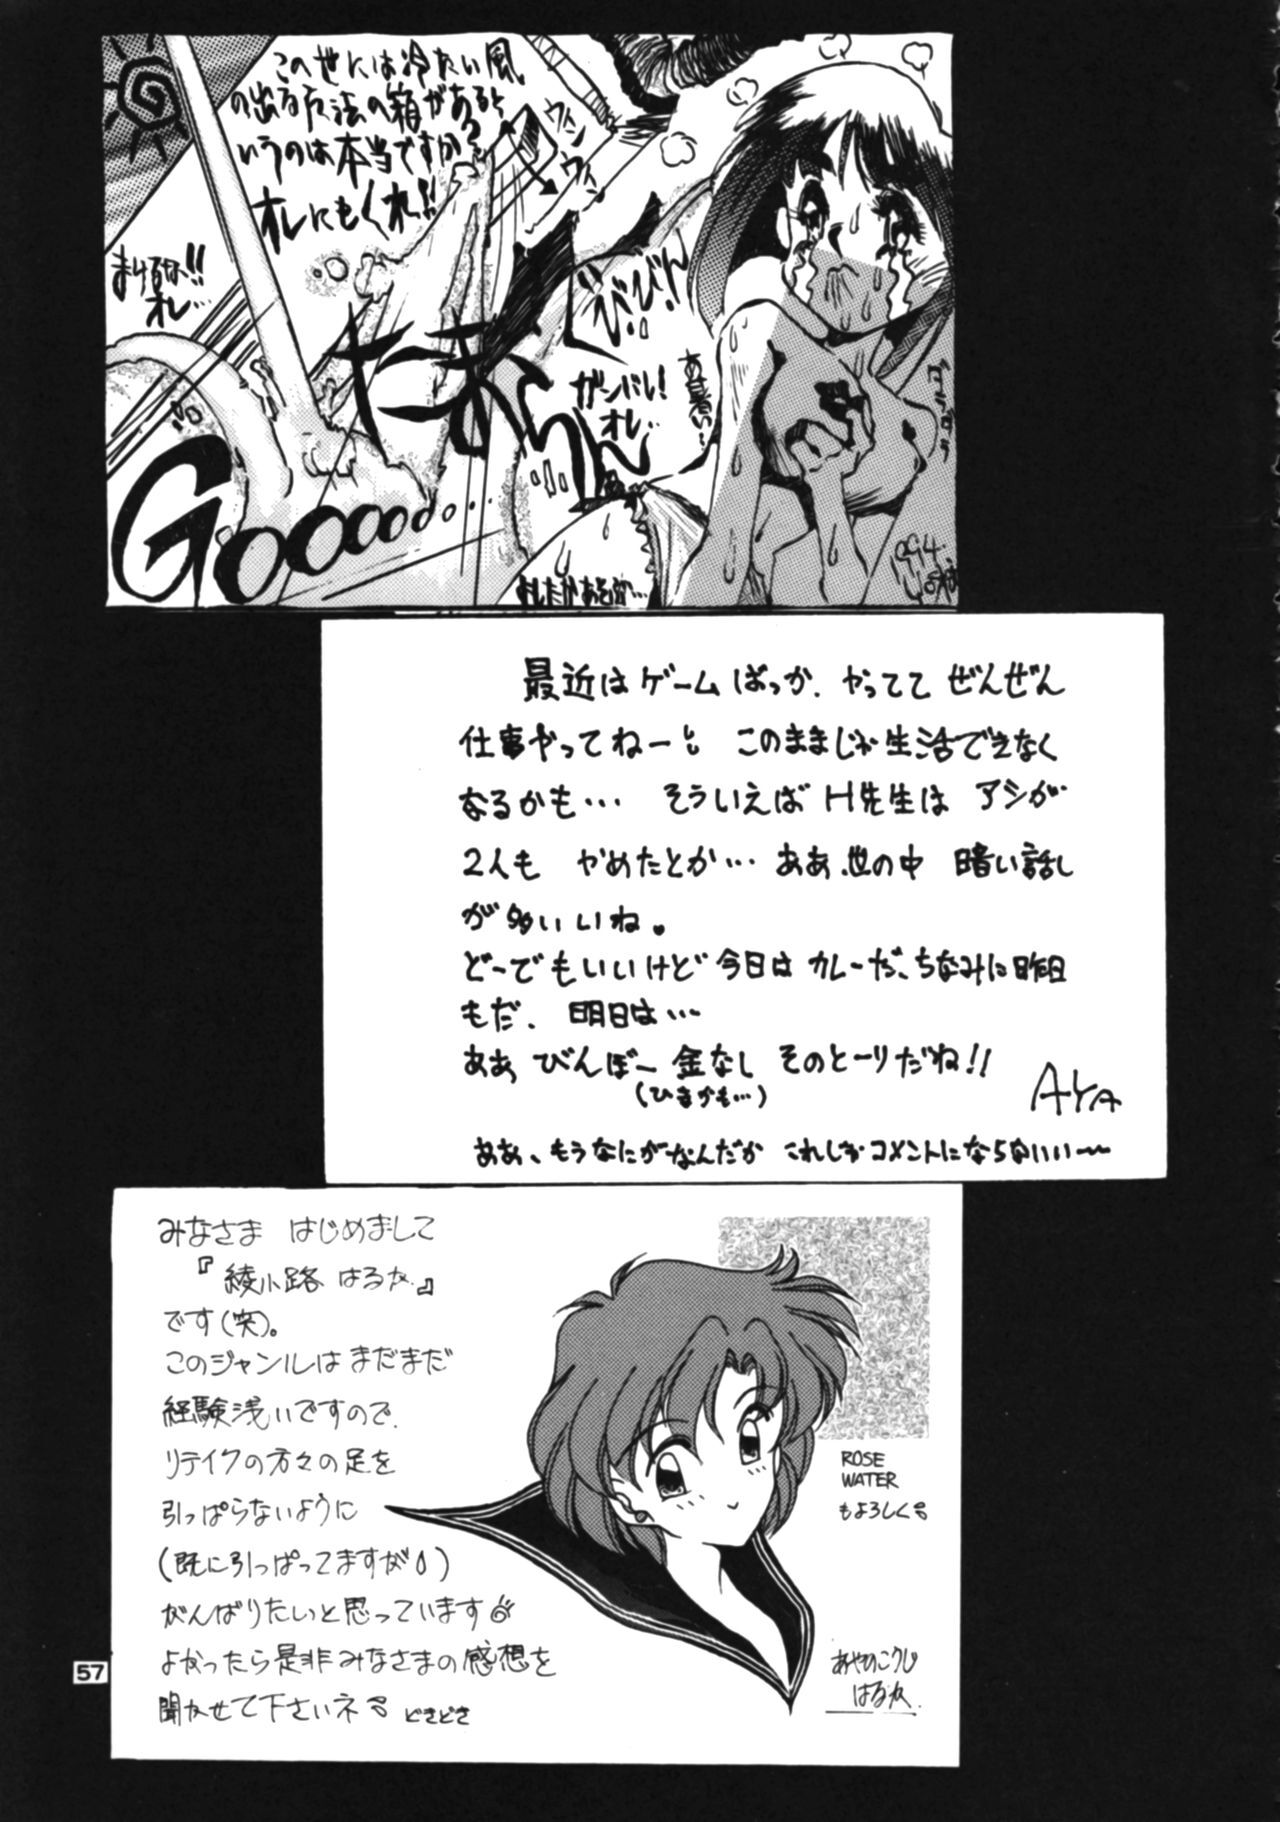 この世には冷たい風
の出る魔法の箱があると
いうのは本当ですか?
オレにもくれ!!
ウィン
ウィン
まけるな!!
オレ…
たまらん
びびびん
ガンバレ!
オレ…
あ…暑い…
ダラダラ
Gooooodo...
'94.
最近はゲームばっか、やってて ぜんぜん
仕事やってねーし このままじゃ生活できなく
なるかも… そういえば H先生は アシが
2人も やめたとか… ああ、世の中 暗い話し
が多いいね。
どーでもいいけど今日は カレーだ、ちなみに昨日
もだ、明日は…
ああ びんぼー 金なし そのとーりだね!!
(ひまかも…)
AYA
ああ、もうなにがなんだか これじゃコメントにならないい〜
みなさま はじめまして
『綾小路 はるか』
です(笑)。
このジャンルは まだまだ
経験浅いですので、
リテイクの方々の足を
引っぱらないように
(既に引っぱってますが)
がんばりたいと思っています
よかったら是非みなさまの感想を
聞かせて下さいネ どきどき
ROSE
WATER
もよろしく
あやのこうじ
はるか
57